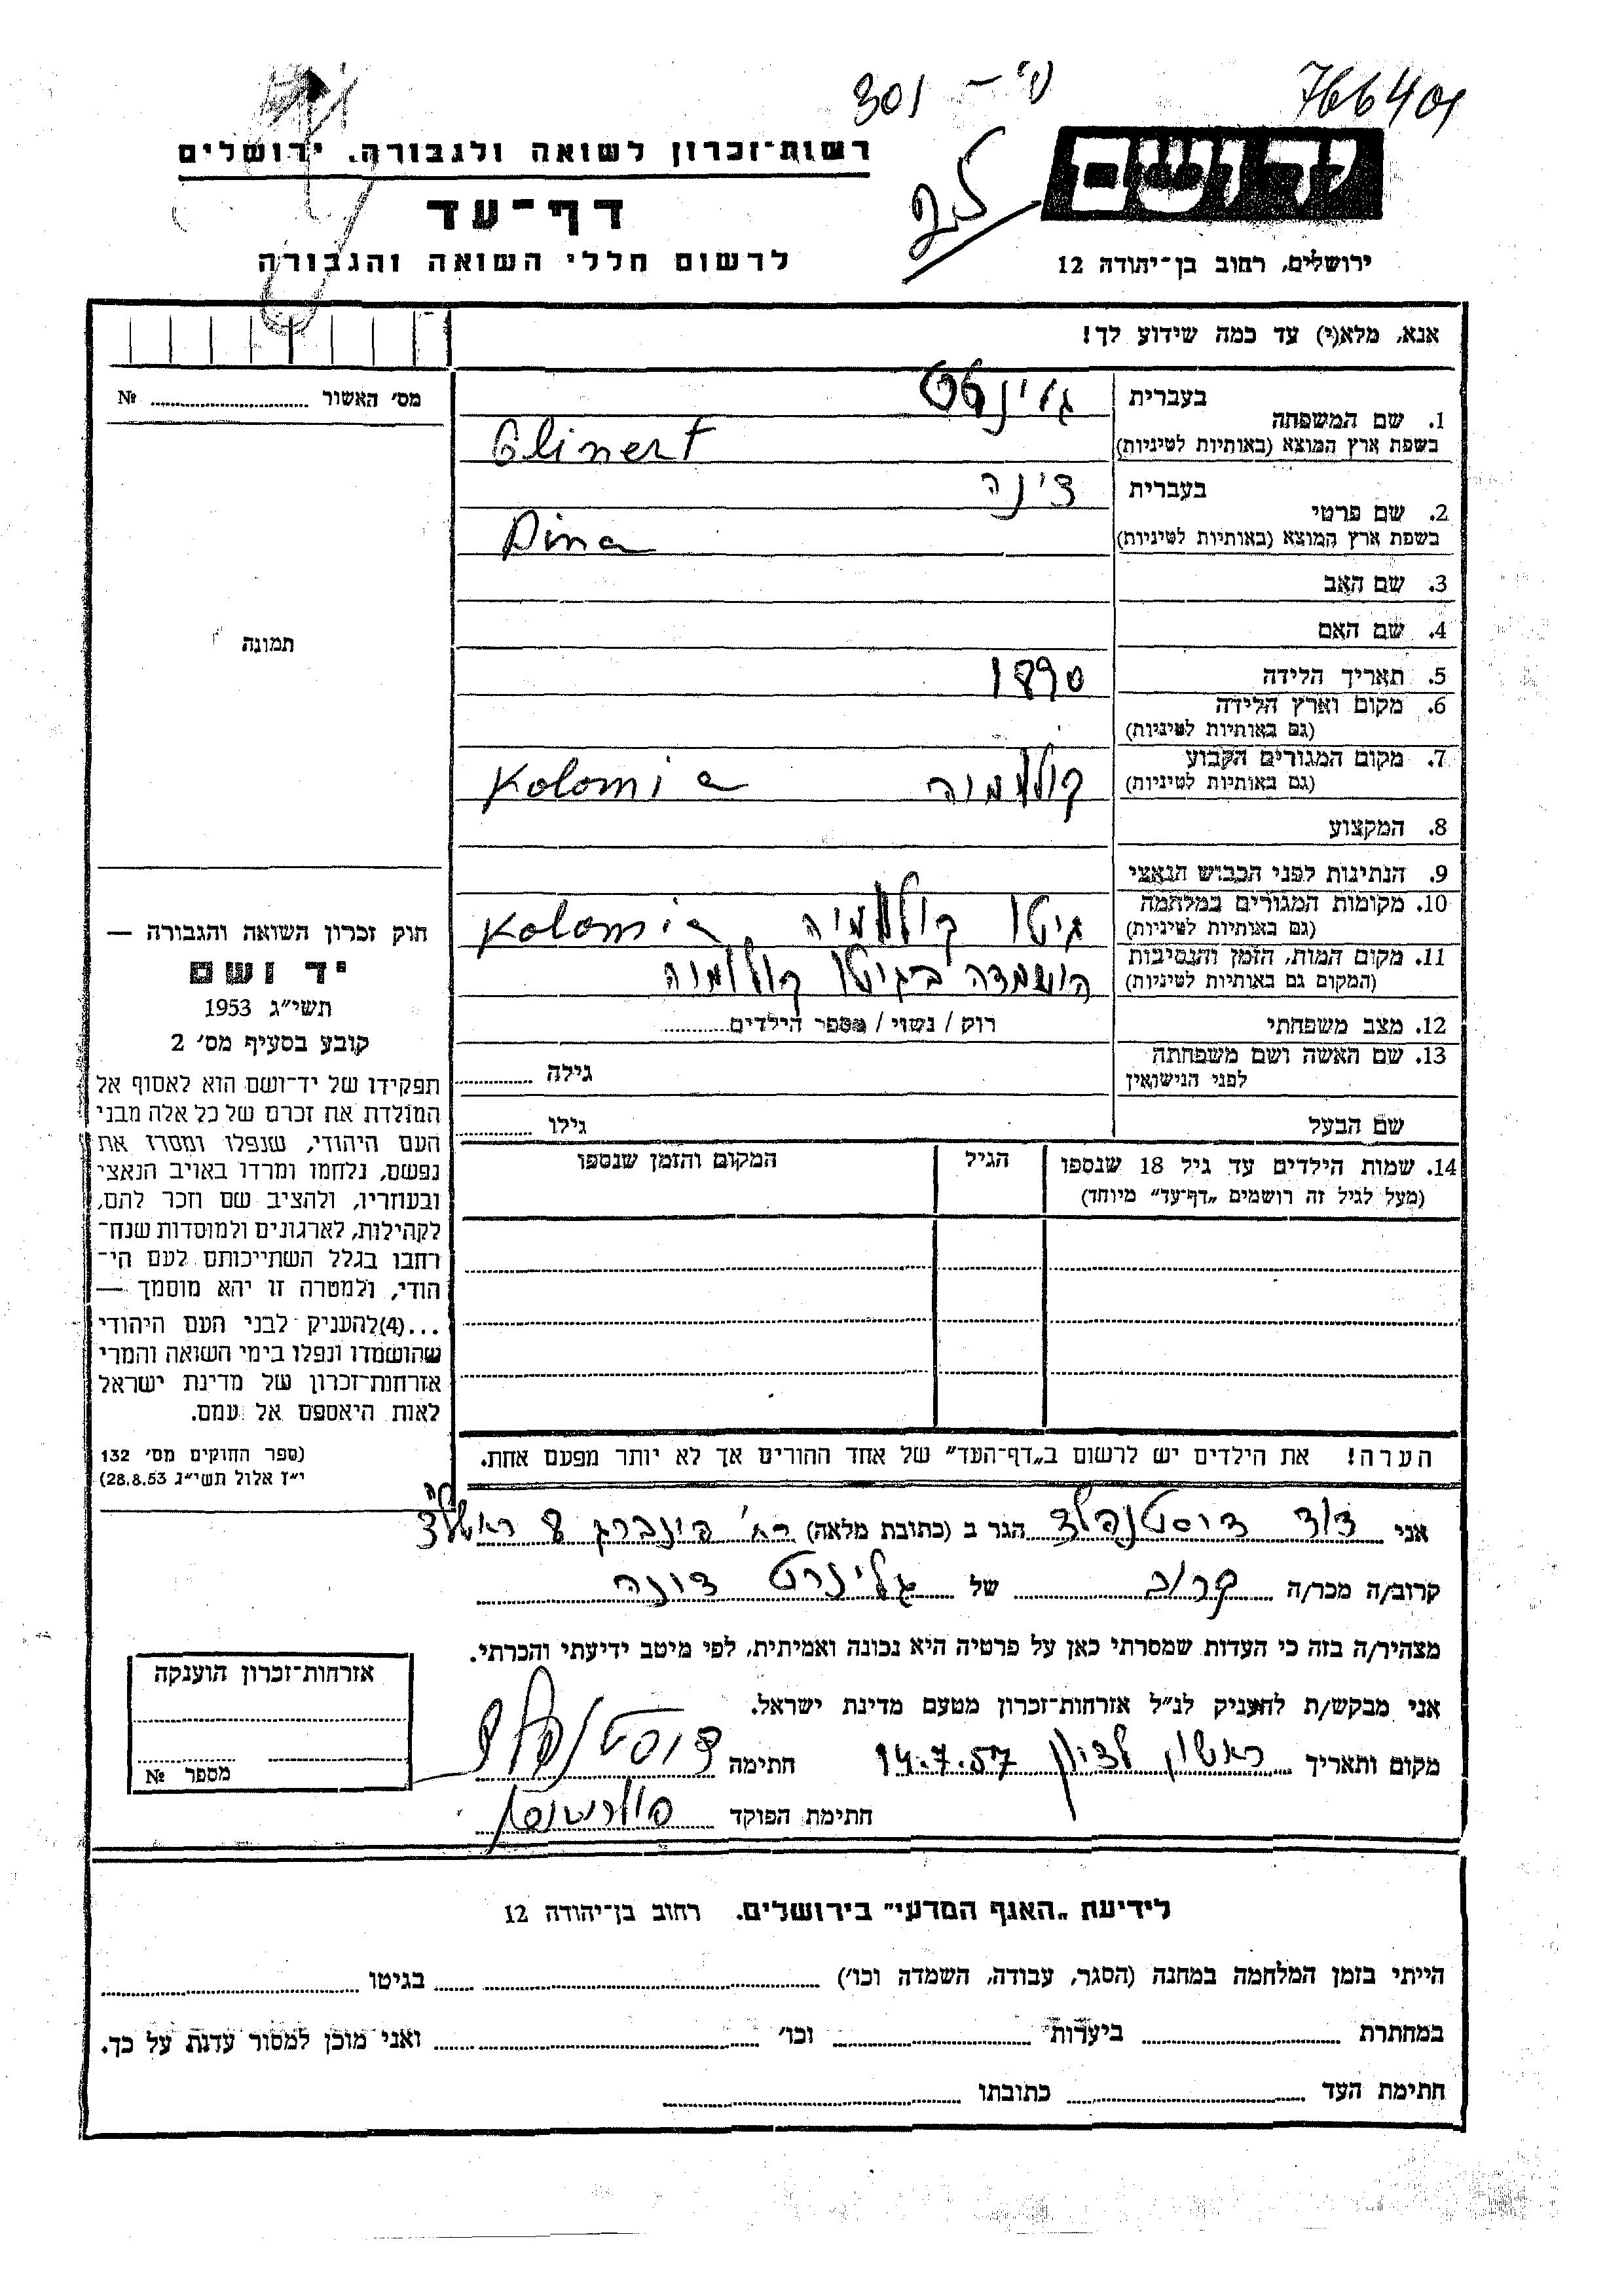 766401
301 – 'ק
ידושם
רשות־זכרון לשואה ולגבורה. ירושלים
דף־עד
ירושלים, רחוב בן־יהודה 12
לרשום חללי השואה והגבורה
אנא, מלא(י) עד כמה שידוע לך!
מס׳ האשור № 
1. שם המשפחה בעברית גלינרט
בשפת ארץ המוצא (באותיות לטיניות) Glinert
2. שם פרטי בעברית דינה
בשפת ארץ המוצא (באותיות לטיניות) Dina
3. שם האב
4. שם האם
תמונה
5. תאריך הלידה 1890
6. מקום וארץ הלידה
(גם באותיות לטיניות)
7. מקום המגורים הקבוע
(גם באותיות לטיניות) קולומיה Kolomia
8. המקצוע
9. הנתינות לפני הכבוש הנאצי
10. מקומות המגורים במלחמה
(גם באותיות לטיניות) גיטו קולומיה Kolomia
11. מקום המות, הזמן והנסיבות
(המקום גם באותיות לטיניות) הושמדה בגיטו קולומיה
12. מצב משפחתי רוק / נשוי / מספר הילדים
13. שם האשה ושם משפחתה
לפני הנישואין גילה
שם הבעל גילו
חוק זכרון השואה והגבורה —
יד ושם
תשי״ג 1953
קובע בסעיף מס׳ 2
תפקידו של יד־ושם הוא לאסוף אל
המולדת את זכרם של כל אלה מבני
העם היהודי, שנפלו ומסרו את
נפשם, נלחמו ומרדו באויב הנאצי
ובעוזריו, ולהציב שם וזכר להם,
לקהילות, לארגונים ולמוסדות שנח־
רחבו בגלל השתייכותם לעם הי־
הודי, ולמטרה זו יהא מוסמך —
...(4)להעניק לבני העם היהודי
שהושמדו ונפלו בימי השואה והמרי
אזרחות־זכרון של מדינת ישראל
לאות היאספם אל עמם.
(ספר החוקים מס׳ 132
י״ז אלול תשי״ג 28.8.53)
14. שמות הילדים עד גיל 18 שנספו הגיל המקום והזמן שנספו
(מעל לגיל זה רושמים „דף־עד״ מיוחד)
הערה! את הילדים יש לרשום ב„דף־העד״ של אחד ההורים אך לא יותר מפעם אחת.
אני דוד דוסטנפלד הגר ב (כתובת מלאה) רח׳ פינברג 8 ראשל״צ
קרוב/ה מכר/ה קרוב של גלינרט דינה
מצהיר/ה בזה כי העדות שמסרתי כאן על פרטיה היא נכונה ואמיתית, לפי מיטב ידיעתי והכרתי.
אני מבקש/ת להעניק לנ״ל אזרחות־זכרון מטעם מדינת ישראל.
מקום ותאריך ראשון לציון 14.7.57 חתימה דוסטנפלד
חתימת הפוקד
אזרחות־זכרון הוענקה
מספר №
לידיעת „האגף המדעי״ בירושלים. רחוב בן־יהודה 12
הייתי בזמן המלחמה במחנה (הסגר, עבודה, השמדה וכו׳) בגיטו
במחתרת ביערות וכו׳ ואני מוכן למסור עדות על כך.
חתימת העד כתובתו